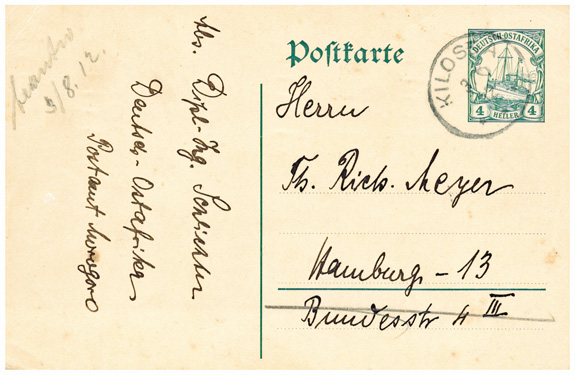 Postkarte
DEUTSCH-OSTAFRIKA
4 HELLER 4
KILOSSA
Herrn
Th. Rich. Meyer
Hamburg - 13
Bundesstr 4 III
Abs. Dipl-Ing. Schlichter
Deutsch-Ostafrika
Postamt Morogoro
3/8.12.